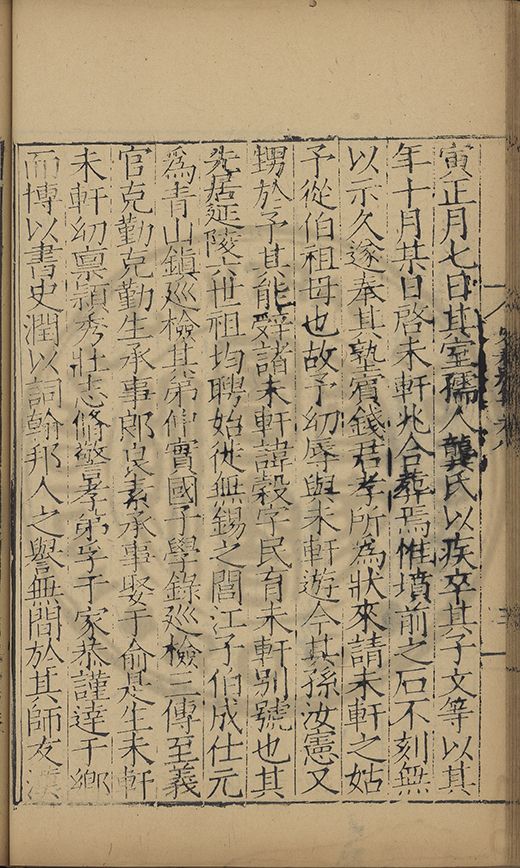 寅正月七日其室孺人龔氏以疾卒其子文等以其
年十月某日啓未軒兆合葬焉惟墳前之石不刻無
以示久遂奉其塾賓錢君孝所爲狀來請未軒之姑
予從伯祖母也故予幼辱與未軒遊今其孫汝憲又
甥於予其能辭諸未軒諱榖字民育未軒别號也其
先居延陵六世祖均聘始徙無錫之閭江子伯成仕元
爲青山鎮巡檢其弟仲實國子學錄巡檢三傳至義
官克勤克勤生承事郎良素承事娶于俞是生未軒
未軒幼禀頴秀壯志脩警孝弟孚于家恭謹達于鄉
而博以書史潤以詞翰邦人之譽無間於其師友漢